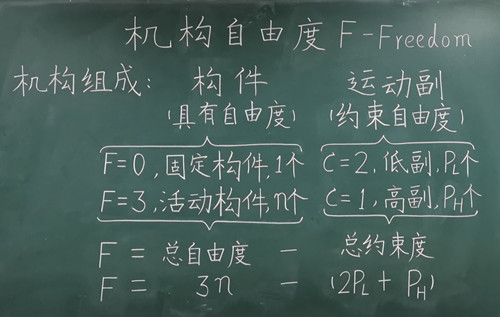 机构自由度 F-Freedom
机构组成: 构件 运动副
(具有自由度) (约束自由度)
F=0,固定构件,1个 C=2,低副,PL个
F=3,活动构件,n个 C=1,高副,PH个
F = 总自由度 - 总约束度
F = 3n - (2PL + PH)